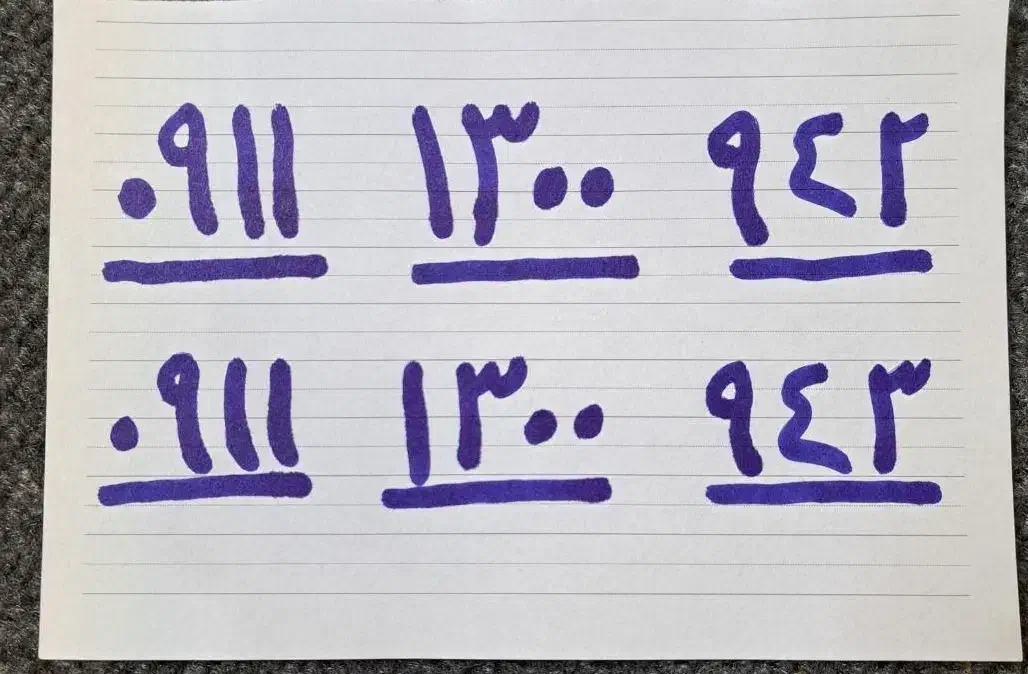 ٠٩١١ ١٣٠٠ ٩٤٢
٠٩١١ ١٣٠٠ ٩٤٣